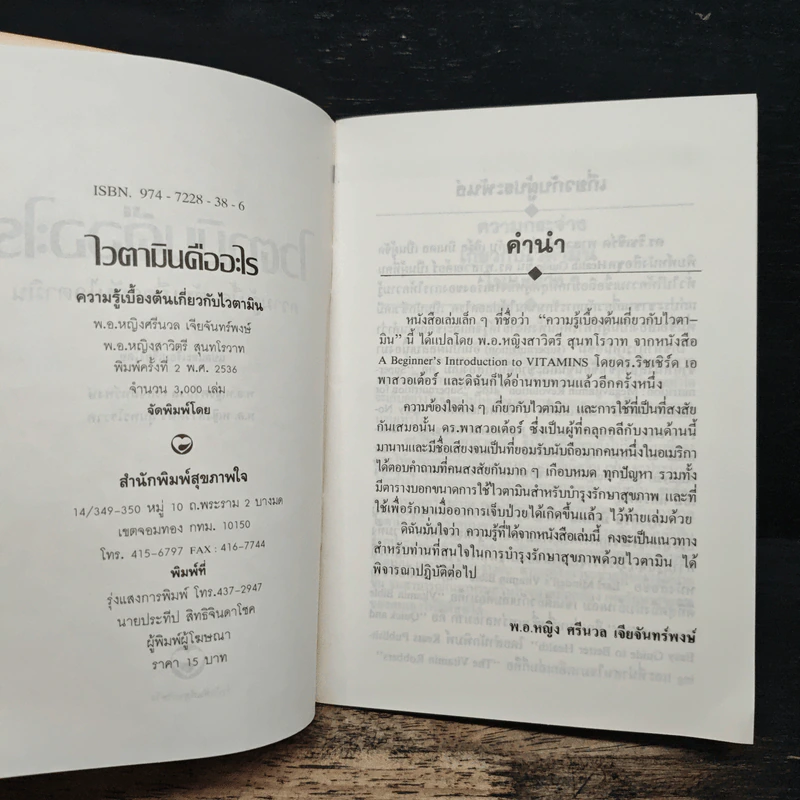 ISBN. 974 - 7228 - 38 - 6
ไวตามินคืออะไร
ความรู้เบื้องต้นเกี่ยวกับไวตามิน
พ.อ.หญิงศรีนวล เจียจันทร์พงษ์
พ.อ.หญิงสาวิตรี สุนทโรวาท
พิมพ์ครั้งที่ 2 พ.ศ. 2536
จำนวน 3,000 เล่ม
จัดพิมพ์โดย
สำนักพิมพ์สุขภาพใจ
14/349-350 หมู่ 10 ถ.พระราม 2 บางมด
เขตจอมทอง กทม. 10150
โทร. 415-6797 FAX : 416-7744
พิมพ์ที่
รุ่งแสงการพิมพ์ โทร.437-2947
นายประทีป สิทธิจินดาโชค
ผู้พิมพ์ผู้โฆษณา
ราคา 15 บาท
คำนำ
หนังสือเล่มเล็ก ๆ ที่ชื่อว่า “ความรู้เบื้องต้นเกี่ยวกับไวตา–
มิน” นี้ ได้แปลโดย พ.อ.หญิงสาวิตรี สุนทโรวาท จากหนังสือ
A Beginner's Introduction to VITAMINS โดยดร.ริชเชิร์ด เอ
พาสวอเต้อร์ และดิฉันก็ได้อ่านทบทวนแล้วอีกครั้งหนึ่ง
ความข้องใจต่าง ๆ เกี่ยวกับไวตามิน และการใช้ที่เป็นที่สงสัย
กันเสมอนั้น ดร.พาสวอเต้อร์ ซึ่งเป็นผู้ที่คลุกคลีกับงานด้านนี้
มานานและมีชื่อเสียงจนเป็นที่ยอมรับนับถือมากคนหนึ่งในอเมริกา
ได้ตอบคำถามที่คนสงสัยกันมาก ๆ เกือบหมด ทุกปัญหา รวมทั้ง
มีตารางบอกขนาดการใช้ไวตามินสำหรับบำรุงรักษาสุขภาพ และที่
ใช้เพื่อรักษาเมื่ออาการเจ็บป่วยได้เกิดขึ้นแล้ว ไว้ท้ายเล่มด้วย
ดิฉันมั่นใจว่า ความรู้ที่ได้จากหนังสือเล่มนี้ คงจะเป็นแนวทาง
สำหรับท่านที่สนใจในการบำรุงรักษาสุขภาพด้วยไวตามิน ได้
พิจารณาปฏิบัติต่อไป
พ.อ.หญิง ศรีนวล เจียจันทร์พงษ์